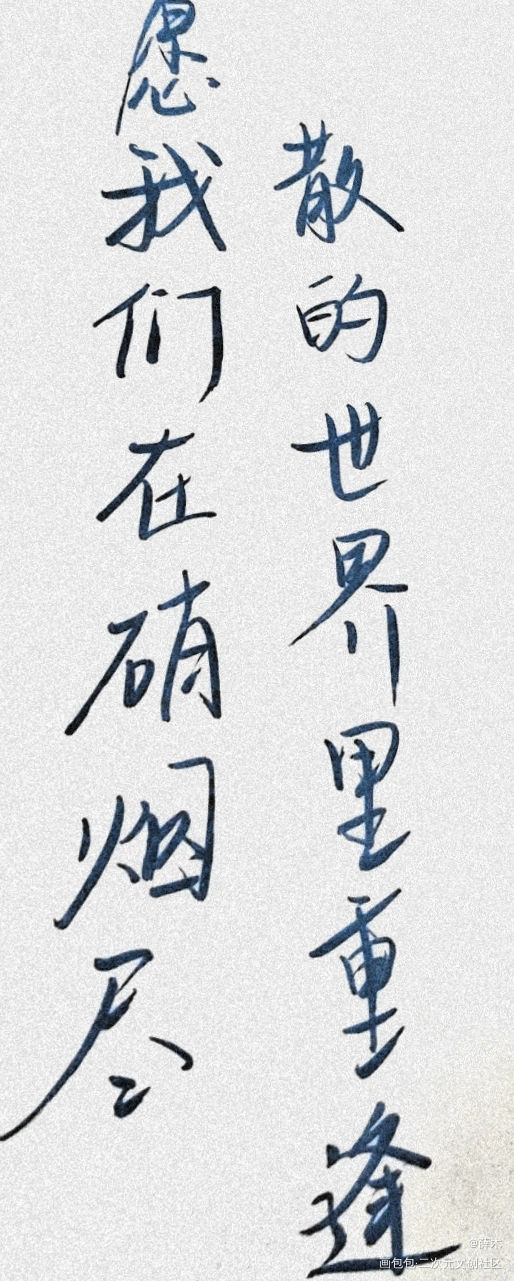 愿我们在硝烟尽
散的世界里重逢
@薛木
画包包·二次元文创社区